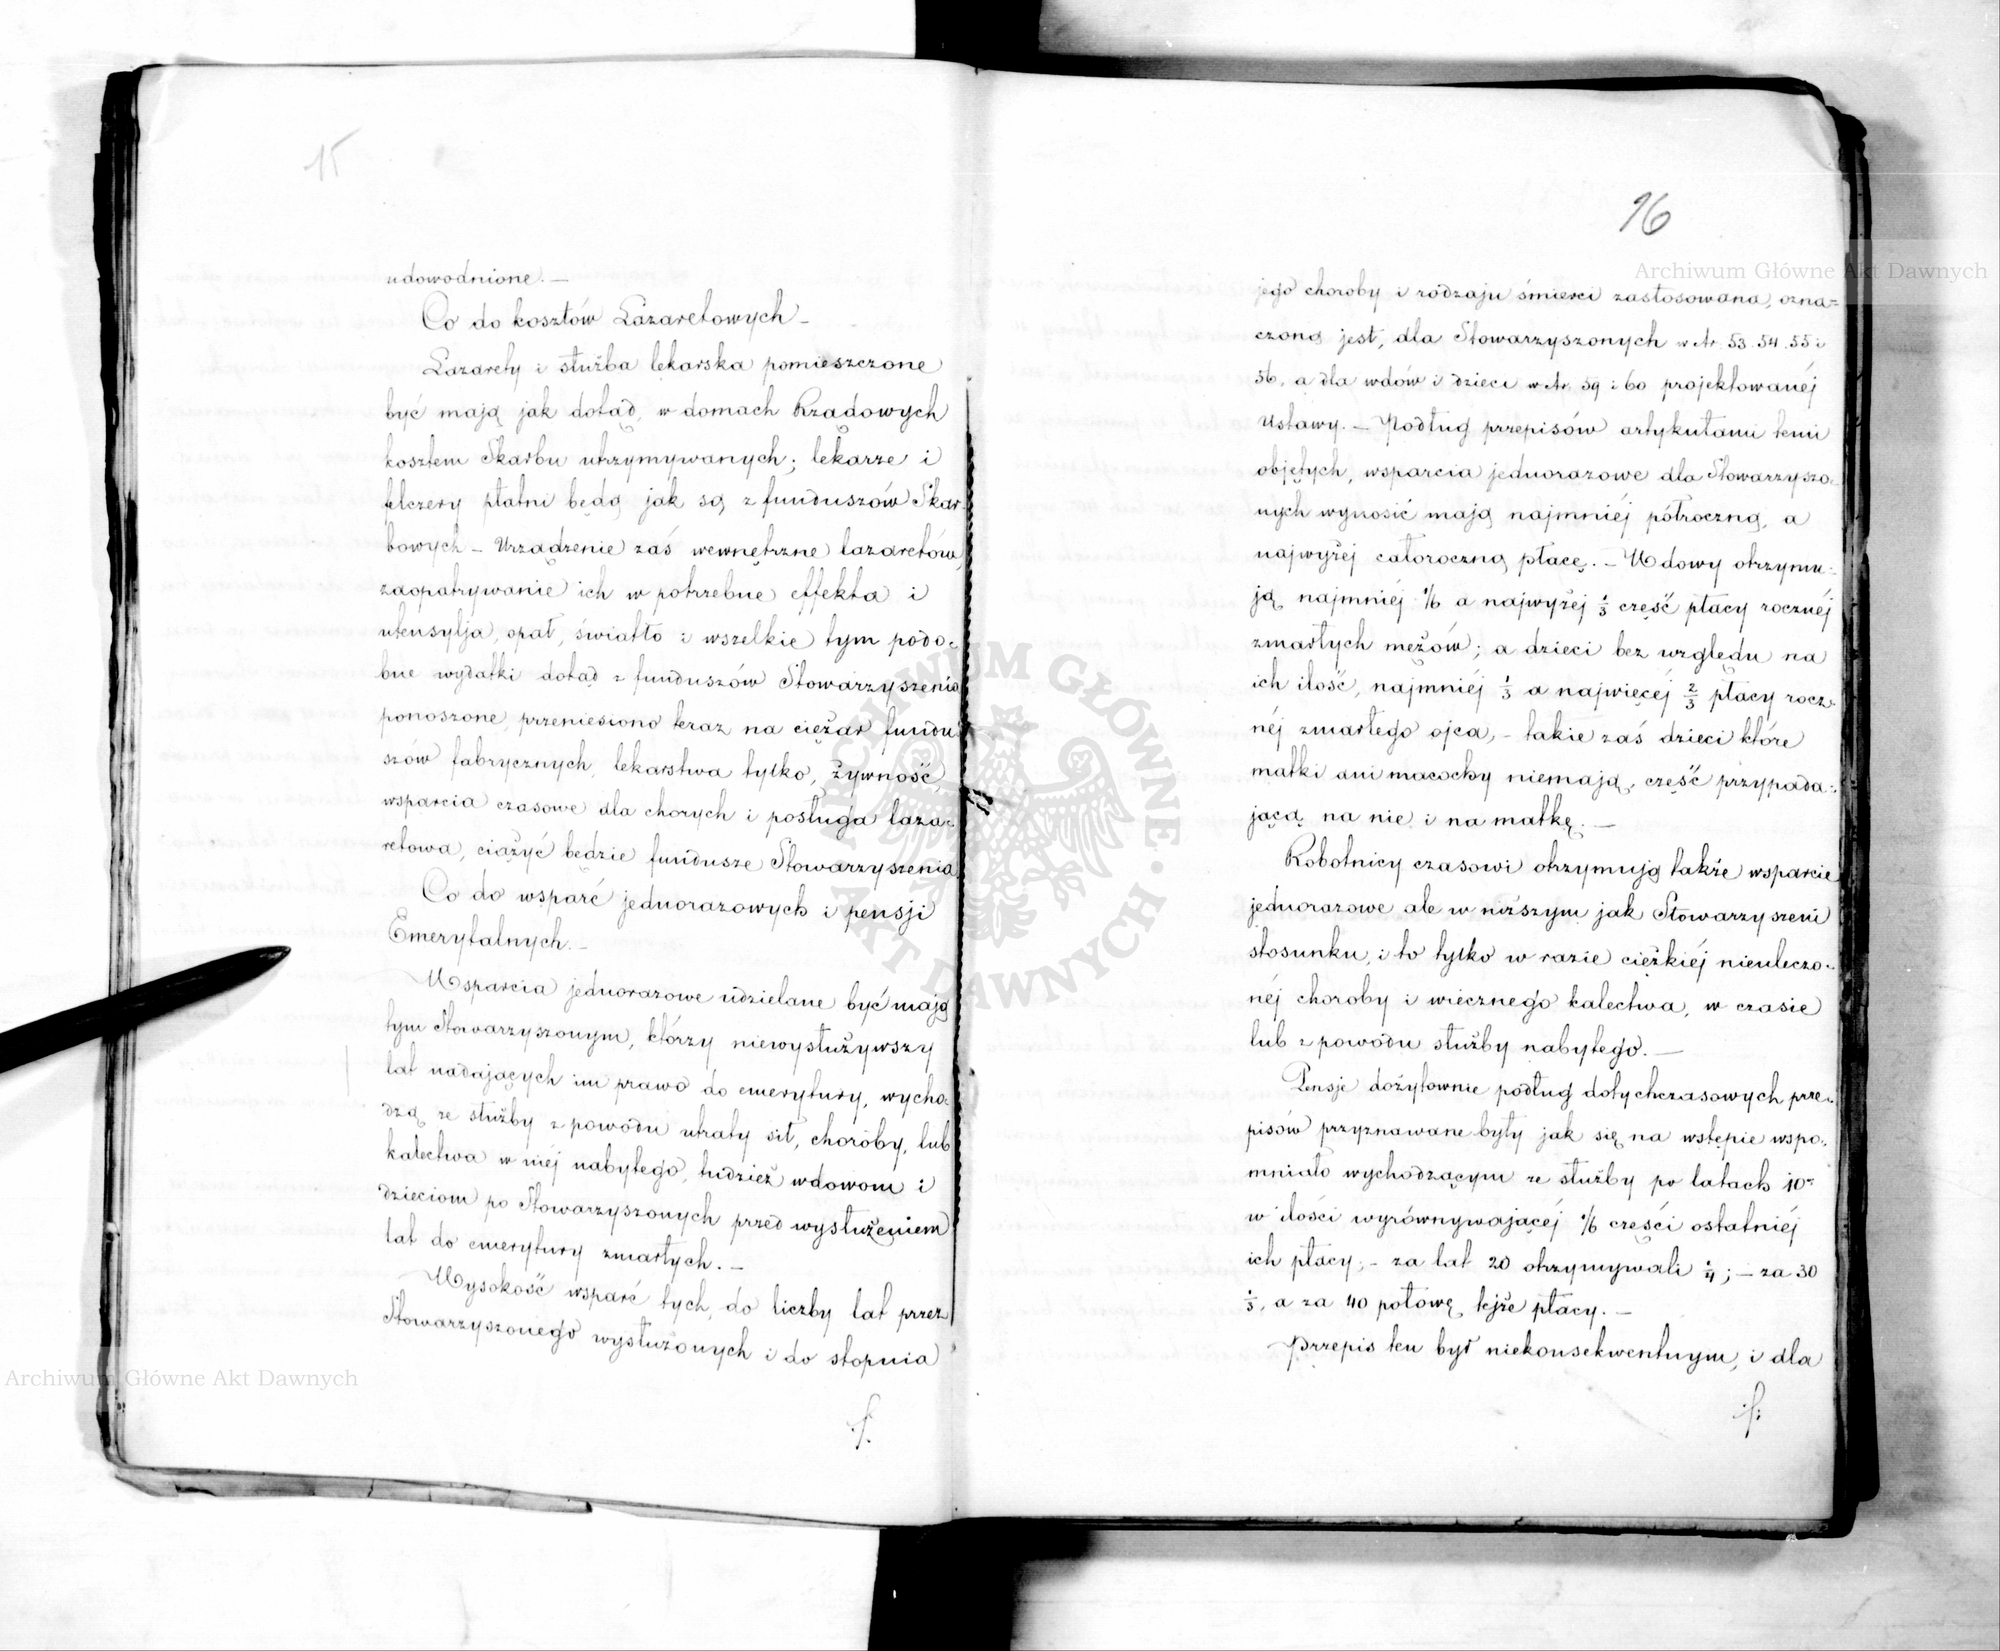 15
udowodnione. —
Co do kosztów Lazaretowych —
Lazarety i służba lekarska pomieszczone
być mają jak dotąd, w domach Rządowych
kosztem Skarbu utrzymywanych; lekarze i
felczery płatni będą jak są, z funduszów Skar-
bowych — Urządzenie zaś wewnętrzne lazaretów,
zaopatrywanie ich w potrzebne effekta i
utensylja, opał, światło i wszelkie tym podo-
bne wydatki dotąd z funduszów Stowarzyszenia
ponoszone, przeniesiono teraz na ciężar fundu-
szów fabrycznych, lekarstwa tylko, żywność,
wsparcia czasowe dla chorych i posługa laza-
retowa, ciążyć będzie fundusze Stowarzyszenia
Co do wsparć jednorazowych i pensji
Emerytalnych. —
Wsparcia jednorazowe udzielane być mają
tym Stowarzyszonym, którzy niewysłużywszy
lat nadających im prawo do emerytury, wycho-
dzą ze służby z powodu utraty sił, choroby, lub
kalectwa w niej nabytego, tudzież wdowom i
dzieciom po Stowarzyszonych przed wysłużeniem
lat do emerytury zmarłych. —
Wysokość wsparć tych, do liczby lat przez
Stowarzyszonego wysłużonych i do stopnia
16
jego choroby i rodzaju śmierci zastosowana, ozna-
czoną jest, dla Stowarzyszonych w Ar. 53. 54. 55 i
56, a dla wdów i dzieci w Ar. 59 i 60 projektowanéj
Ustawy. — Podług przepisów artykułami temi
objętych, wsparcia jednorazowe dla Stowarzyszo-
nych wynosić mają najmniéj półroczną, a
najwyżej całoroczną płacę. — Wdowy otrzymu-
ją najmniéj 1/6 a najwyżéj 1/3 część płacy rocznéj
zmarłych mężów; a dzieci bez względu na
ich ilość, najmniéj 1/3 a najwięcéj 2/3 płacy rocz-
néj zmarłego ojca, — takie zaś dzieci które
matki ani macochy niemają, część przypada-
jącą na nie i na matkę. —
Robotnicy czasowi otrzymują także wsparcie
jednorazowe ale w niższym jak Stowarzyszeni
stosunku, i to tylko w razie ciężkiéj nieuleczo-
néj choroby i wiecznego kalectwa, w czasie
lub z powodu służby nabytego. —
Pensje dożytownie podług dotychczasowych prze-
pisów przyznawane były jak się na wstępie wspo-
mniało wychodzącym ze służby po latach 10
w ilości wyrównywającéj 1/6 części ostatniéj
ich płacy; — za lat 20 otrzymywali 1/4; — za 30
1/3, a za 40 połowę tejże płacy. —
Przepis ten był niekonsekwentnym, i dla
Archiwum Główne Akt Dawnych
Archiwum Główne Akt Dawnych
ARCHIWUM GŁÓWNE AKT DAWNYCH